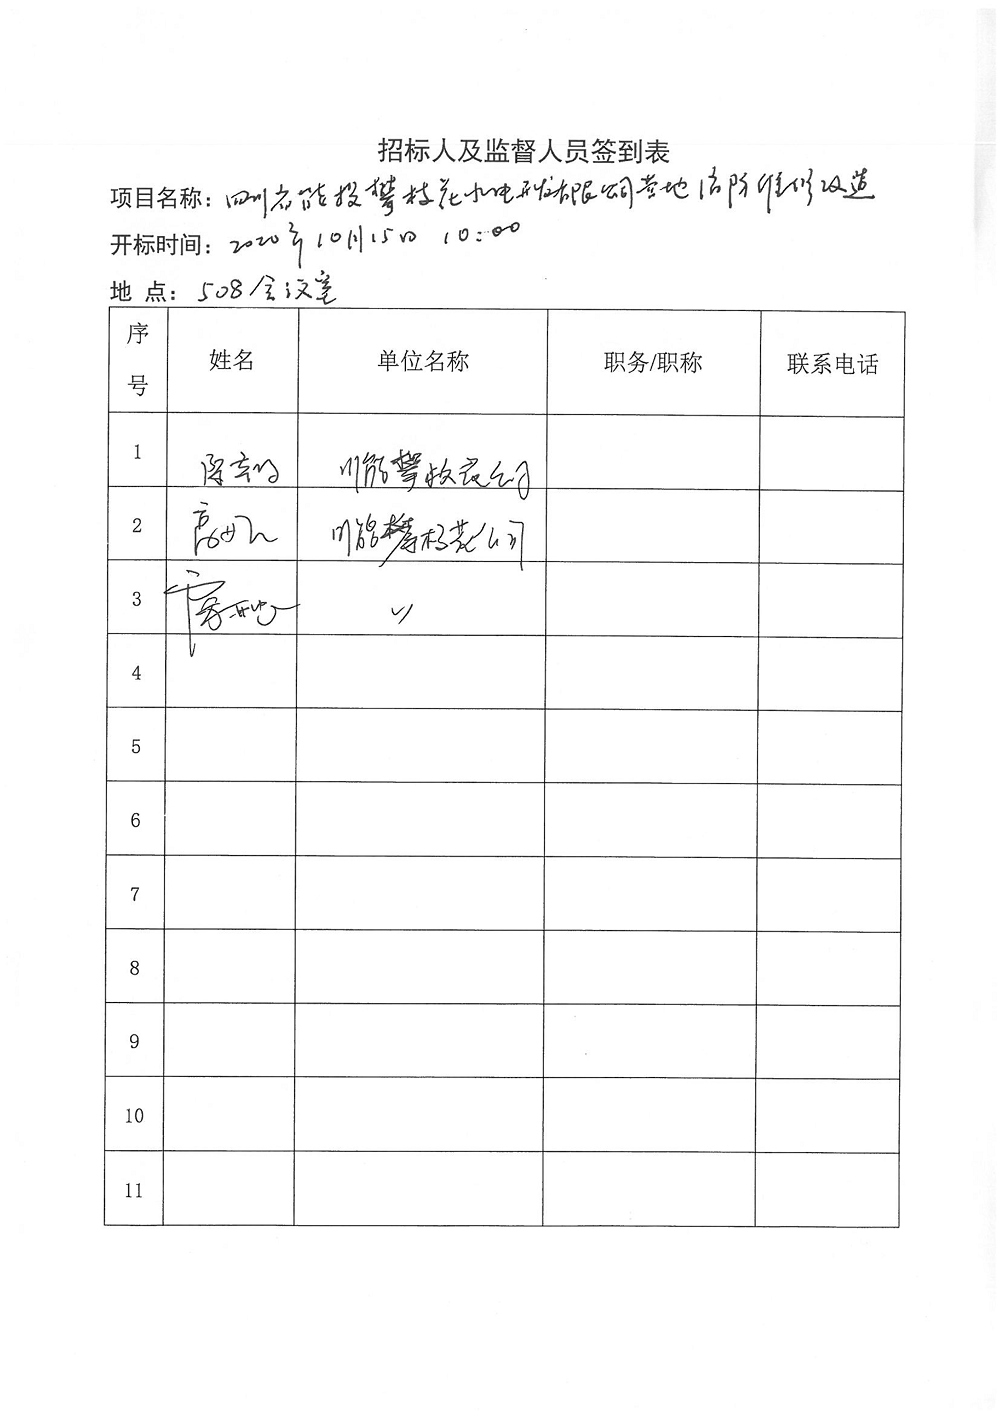 招标人及监督人员签到表
项目名称：四川省能投攀枝花水电开发有限公司营地消防维修改造
开标时间：2020年10月15日 10:00
地 点：508会议室
序号 姓名 单位名称 职务/职称 联系电话
1 川能攀枝花公司
2 川能攀枝花公司
3 〃
4
5
6
7
8
9
10
11